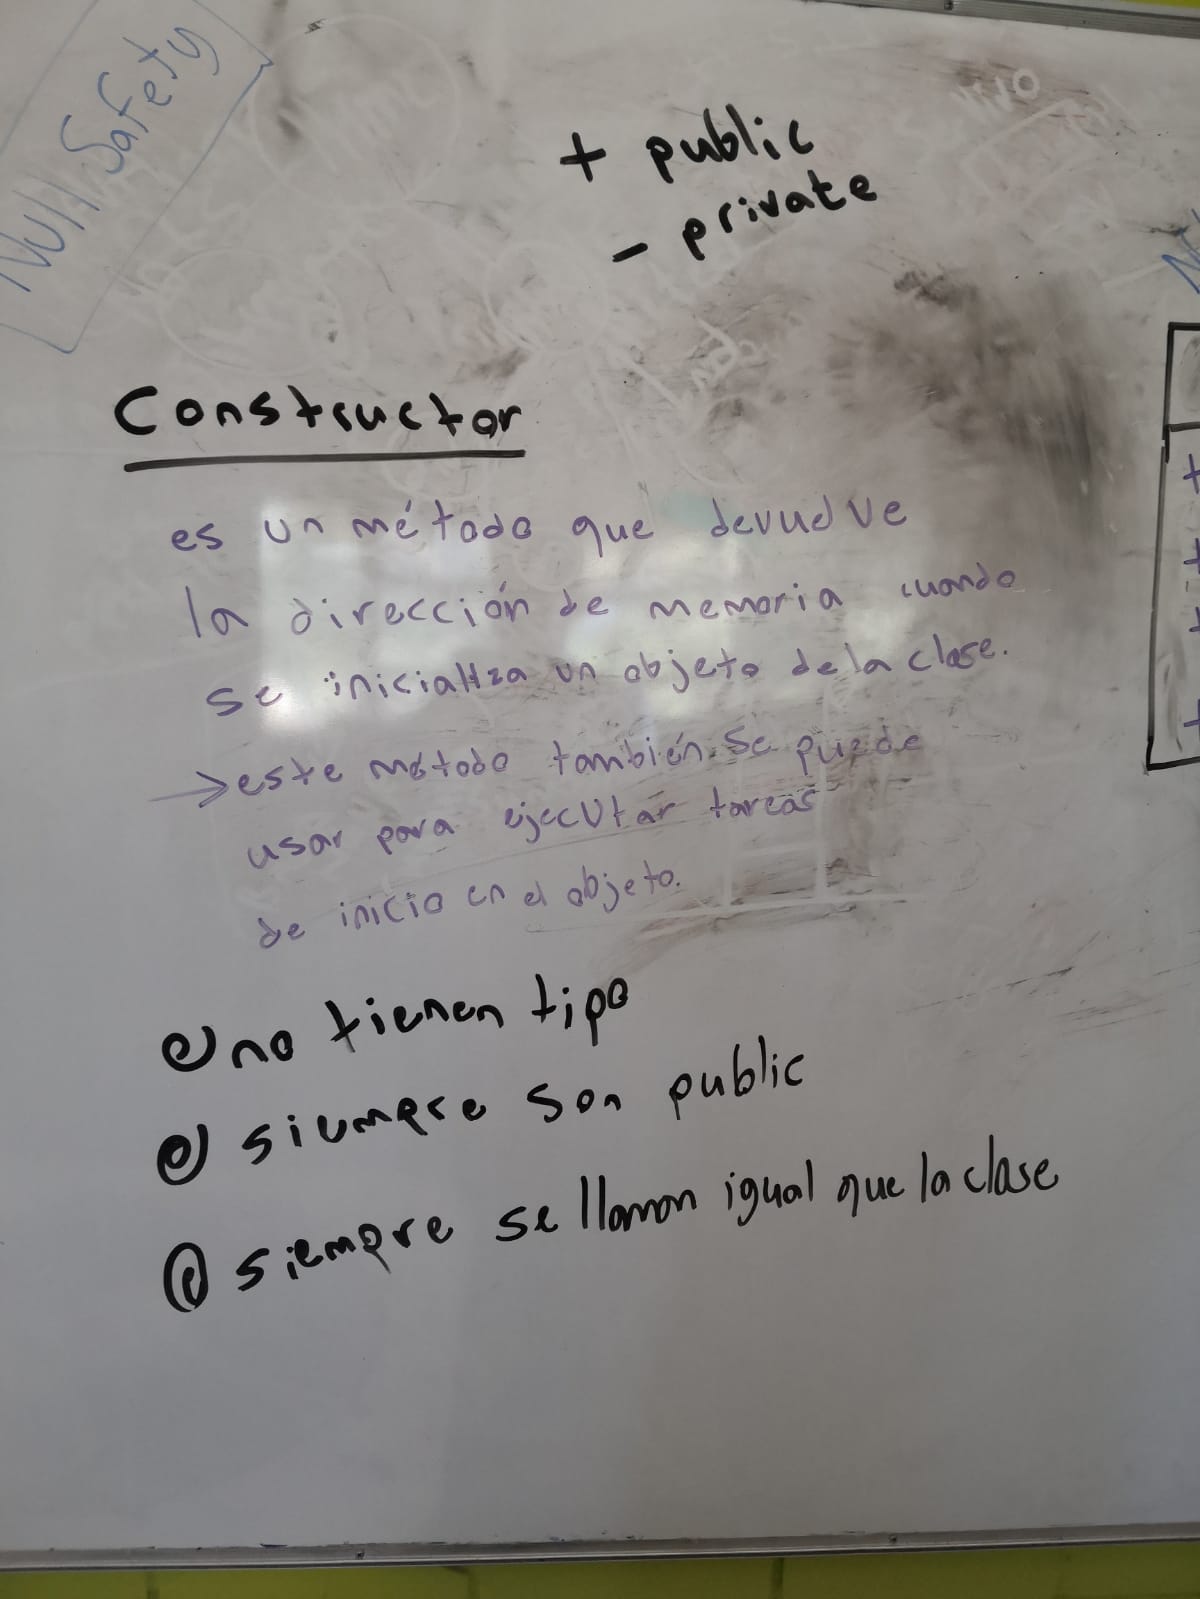 Null Safety
+ public
- private
Constructor
es un método que devuelve
la dirección de memoria cuando
se inicializa un objeto de la clase.
→ este método también se puede
usar para ejecutar tareas
de inicio en el objeto.
no tienen tipo
siempre son public
siempre se llaman igual que la clase
+
+
+
+